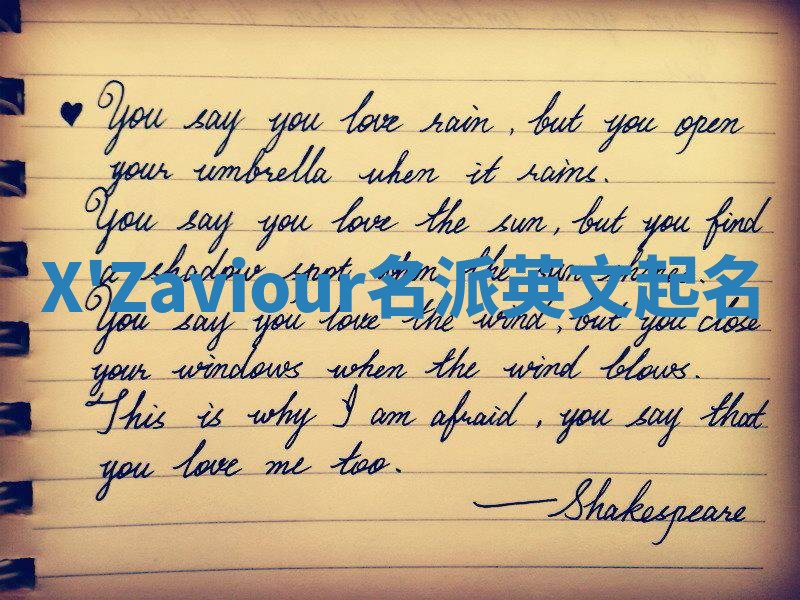 ♥ You say you love rain, but you open
your umbrella when it rains.
You say you love the sun, but you find
a shadow spot when the sun shines.
X'Zaviour名派英文起名
You say you love the wind, but you close
your windows when the wind blows.
This is why I am afraid, you say that
you love me too.
—Shakespeare